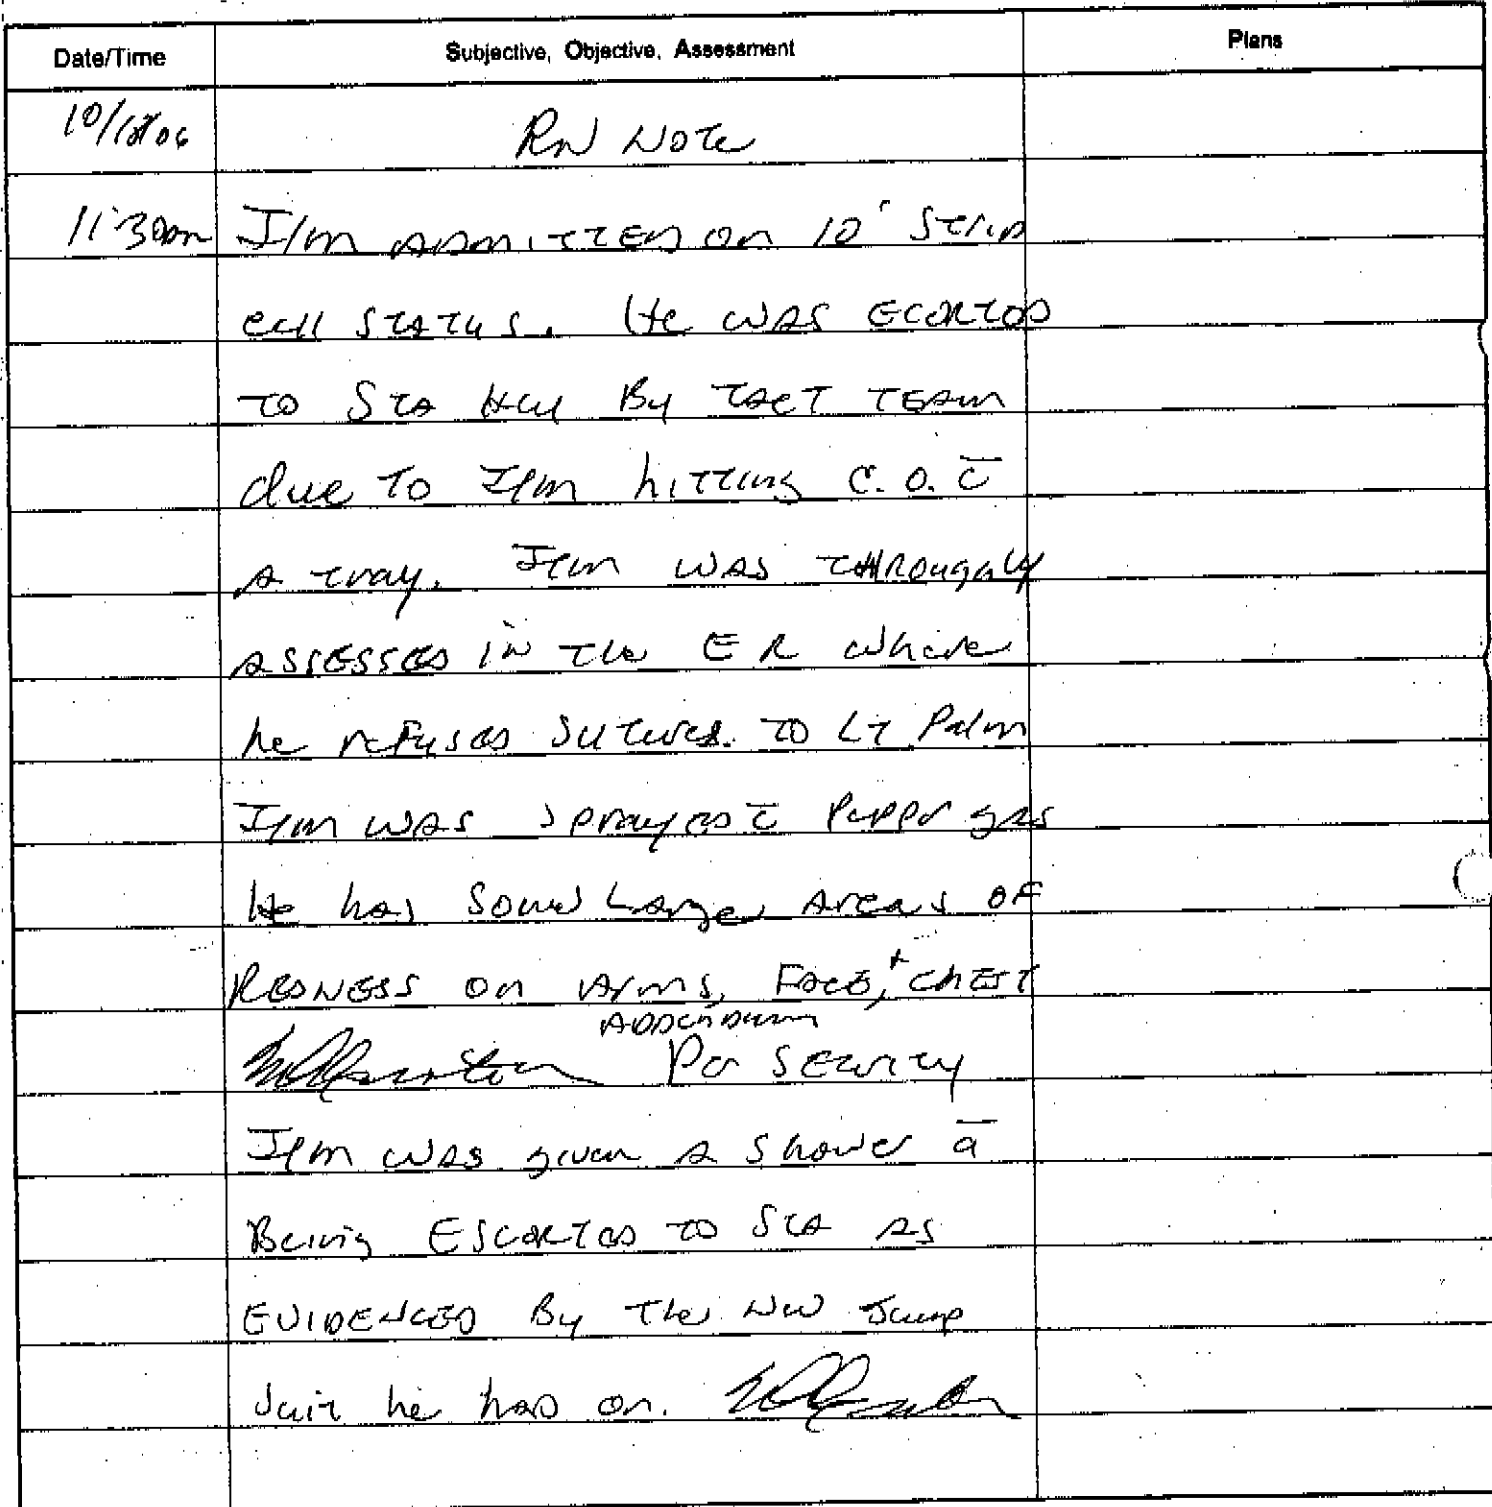 Date/Time Subjective, Objective, Assessment Plans
RN Note
11:30am I/m admitted on 10' Strip
cell status. He was Ecorted
to Sta HCU By TACT TEAM
due to I/m hitting C.O. c̄
a tray. I/m was
assessed in the ER where
he refused sutures. to Lt Palm
I/m was sprayed c̄ Pepper gas
He has some Large Areas of
REDNESS on Arms, Face, + CHEST
Addendum
Per Security
I/m was given a shower ā
Being Escorted to Sta as
EVIDENCED By The Jump
Suit he had on.